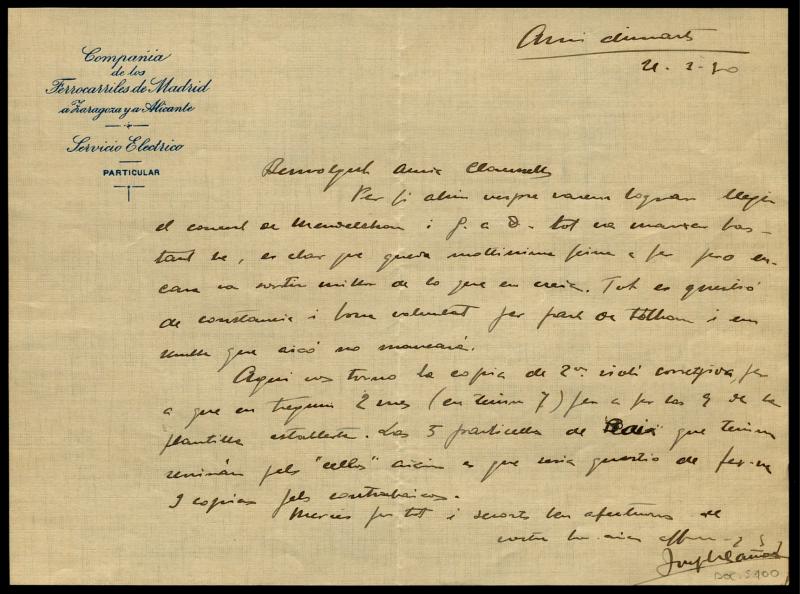 Compañia
de los
Ferrocarriles de Madrid
a Zaragoza y a Alicante
Servicio Electrico
PARTICULAR
Avui dimarts
21-1-30
Benvolgut amic Clausells
Per fi ahir vespre varem lograr llegir
el concert de Mendelshon i tot va marxar bas-
tant be, es clar que queda moltissima feina a fer pero en-
cara va sortir millor de lo que em creia. Tot es questió
de constancia i bona voluntat per part de tothom i em
sembla que aixó no mancará.
Aqui vos torno la copia de 2on violi corretgida, per
a que en tregueu 2 mes (en tenim 7) per a fer las 9 de la
plantilla establerta. Las 5 particellas de que tenim
serviràn pels "cellos" aixin es que seria questio de fer-ne
3 copias pels contrabaixos.
Merces per tot i records ben afectuosos del
vostre bon amic
DOC. 5100